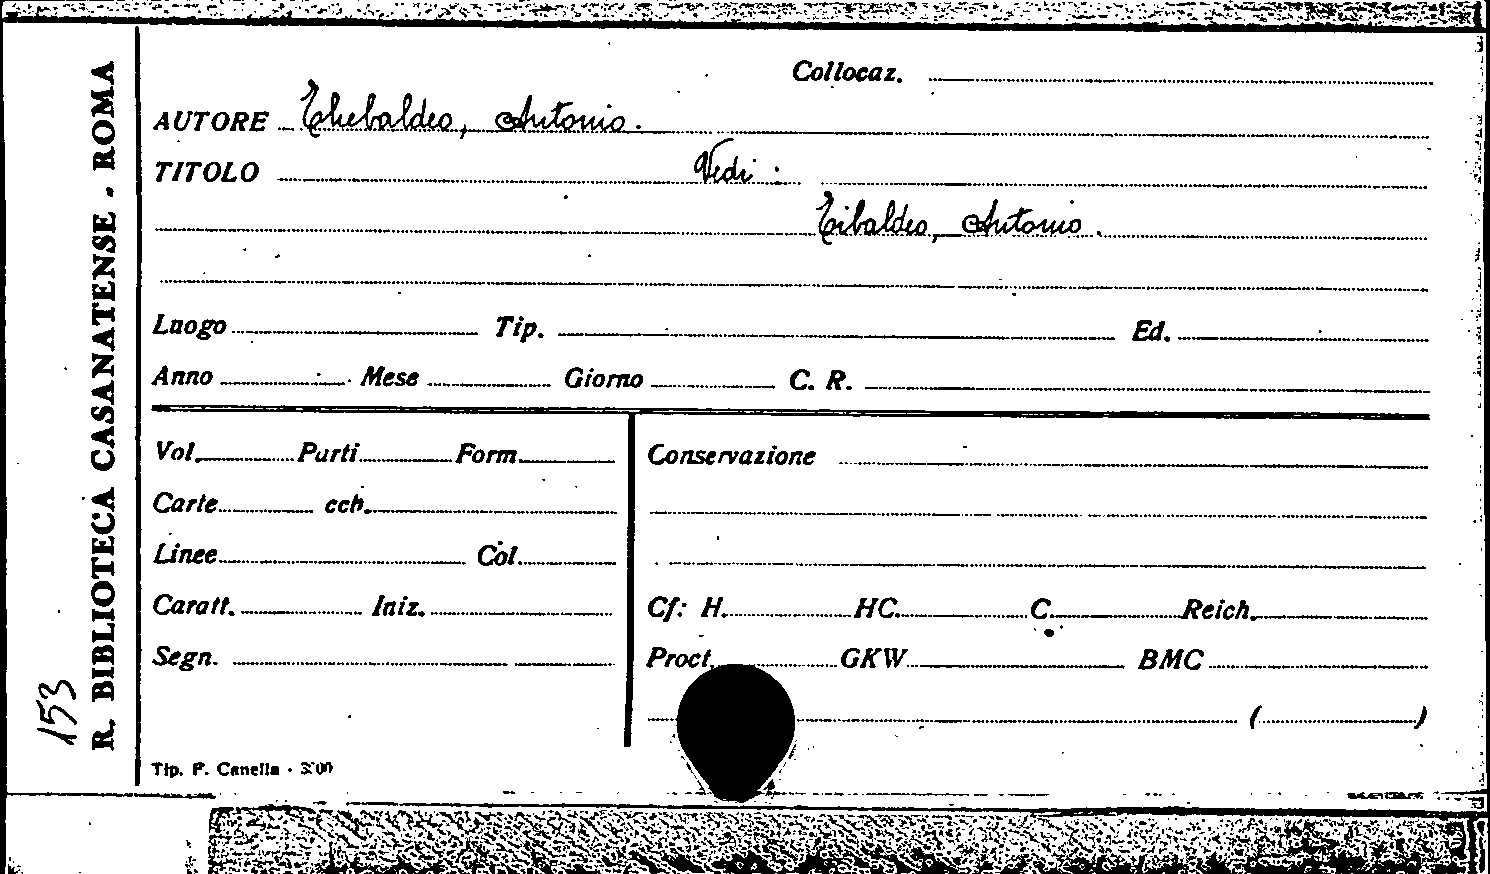 Collocaz.
AUTORE Thebaldeo, Antonio.
TITOLO Vedi:
Tibaldeo, Antonio.
Luogo Tip. Ed.
Anno Mese Giorno C. R.
Vol. Parti Form.
Carte cch.
Linee Col.
Caratt. Iniz.
Segn.
Conservazione
Cf: H. HC. C. Reich.
Proct. GKW BMC
( )
Tip. F. Canella -
R. BIBLIOTECA CASANATENSE - ROMA
153